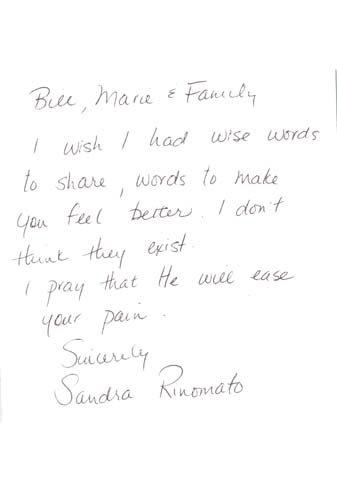 Bill, Marie & Family
I wish I had wise words
to share, words to make
you feel better. I don't
think they exist.
I pray that He will ease
your pain.
Sincerely
Sandra Rinomato